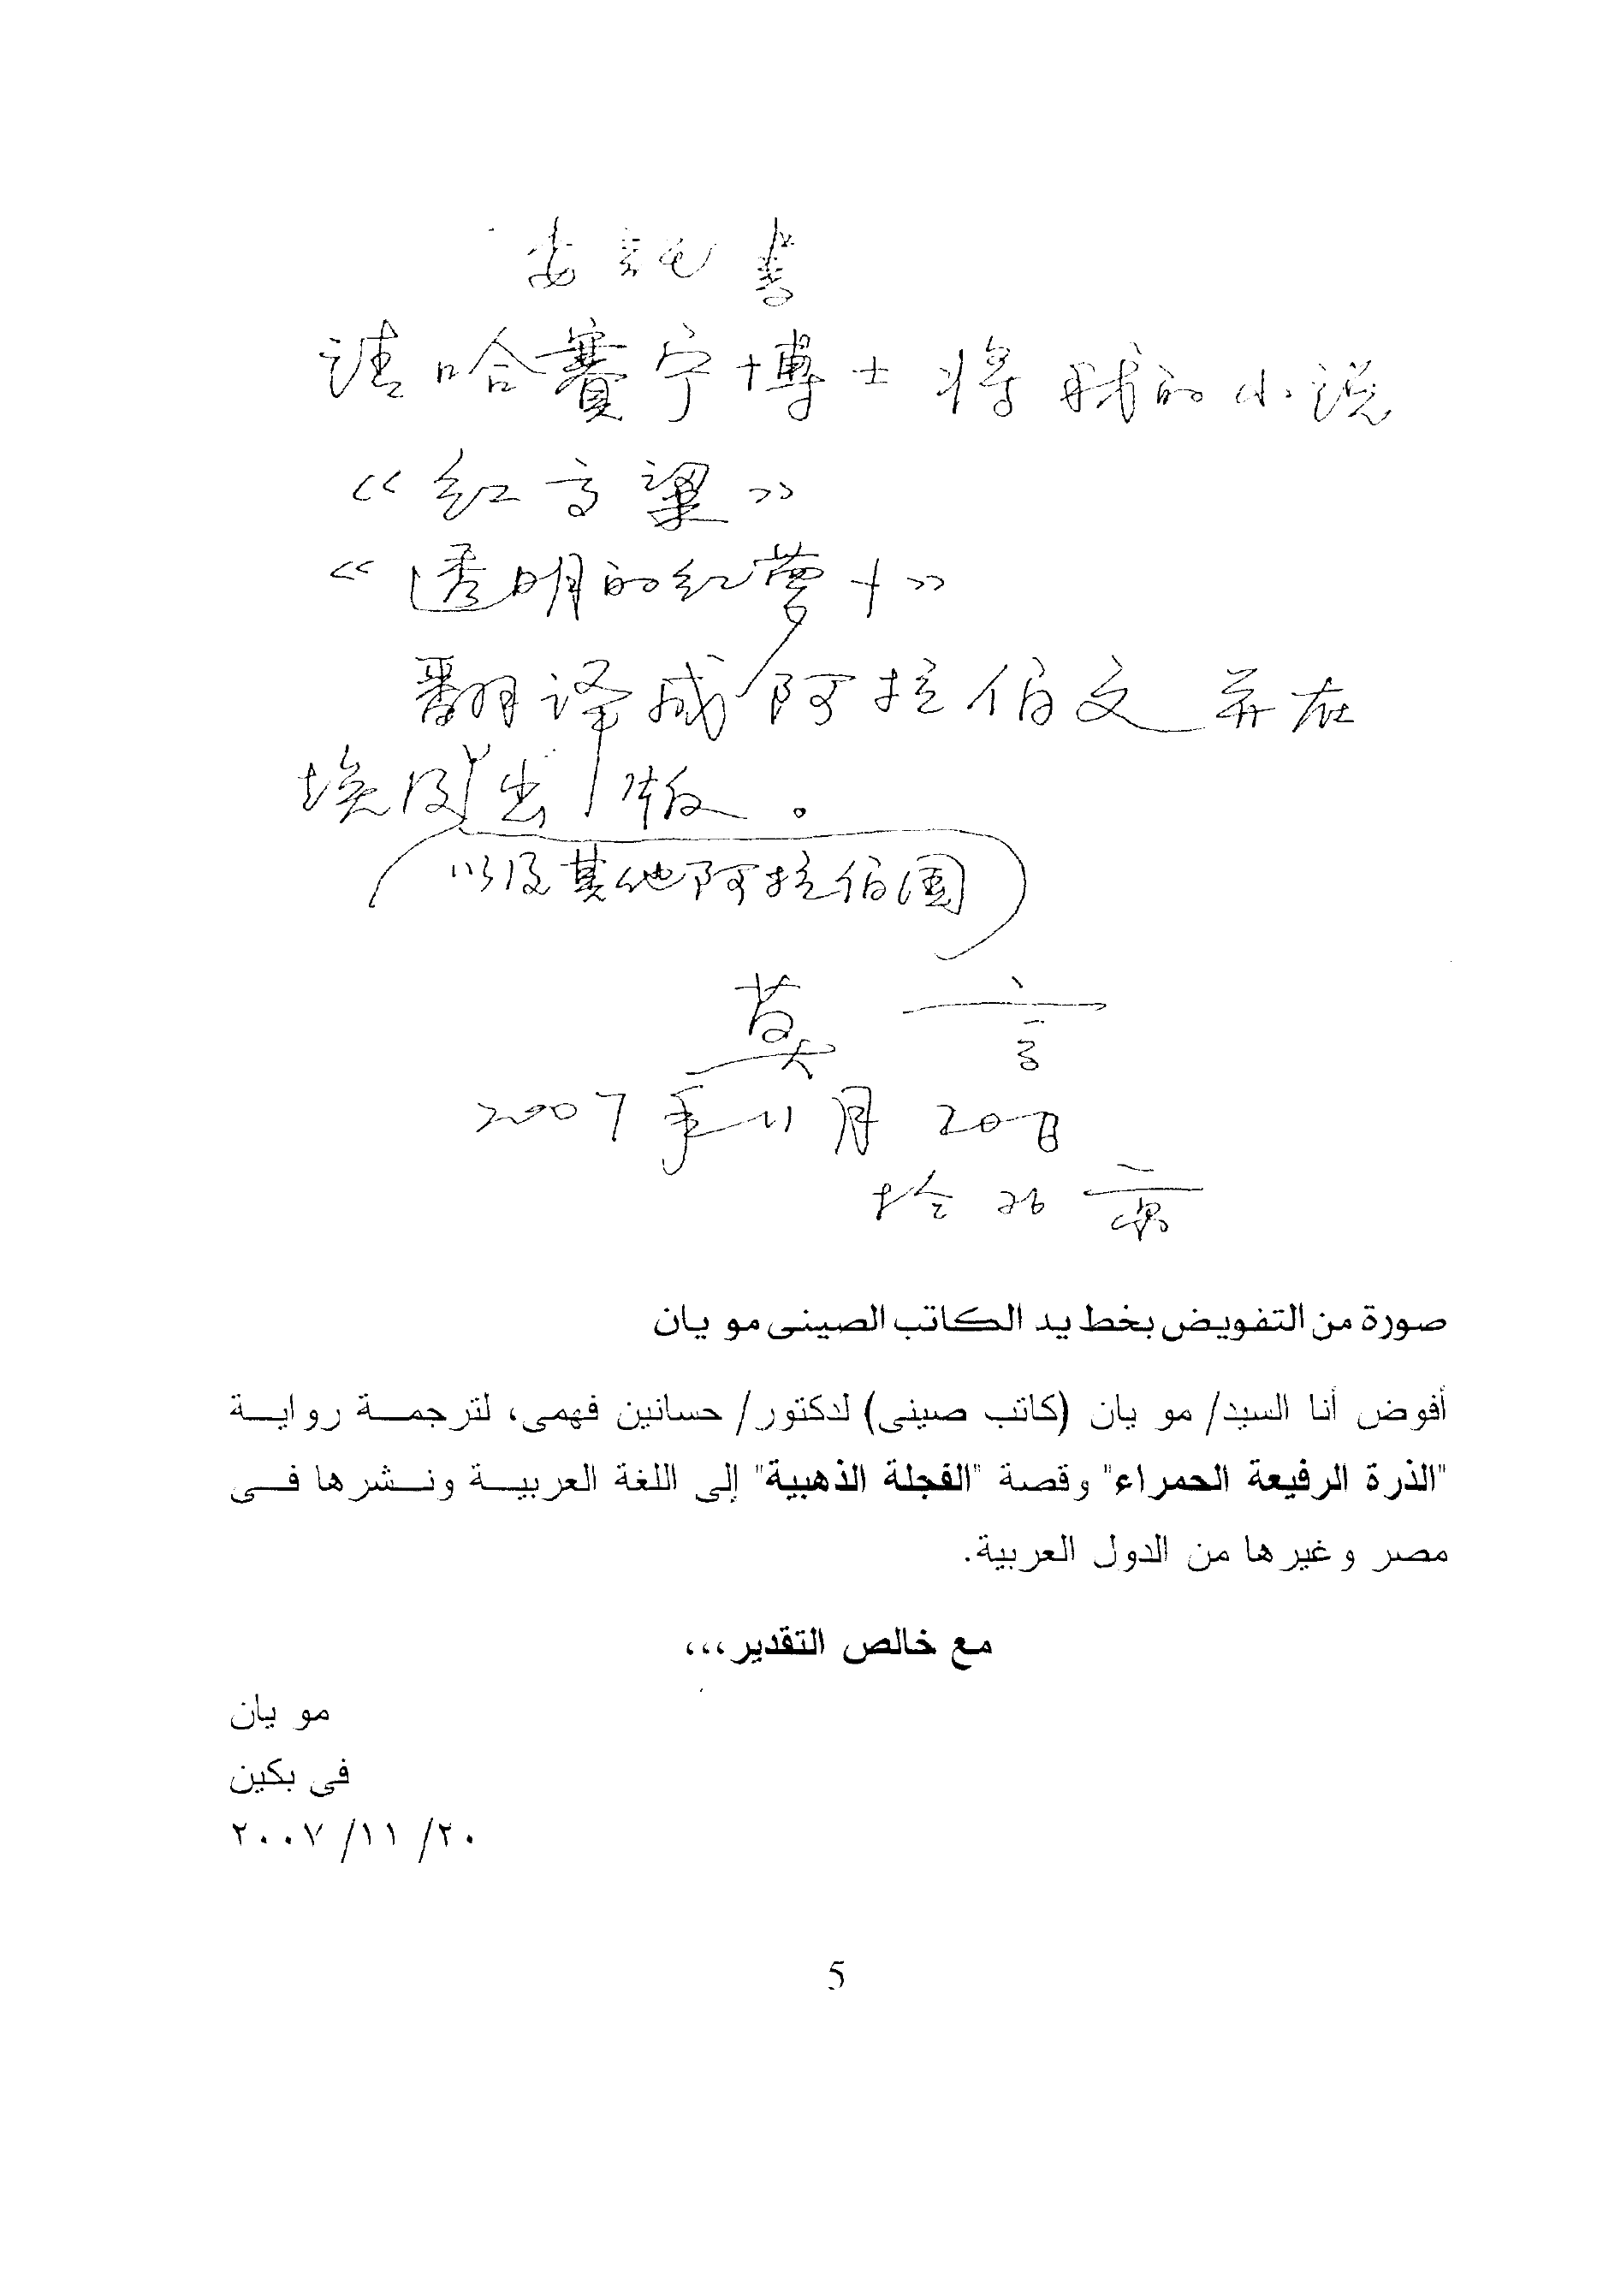 委託書
请哈赛宁博士将我的小说
《红高粱》
《透明的红萝卜》
翻译成阿拉伯文并在
埃及出版。
以及其他阿拉伯国
莫言
2007年11月20日
于北京
صورة من التفويض بخط يد الكاتب الصينى مو يان
أفوض أنا السيد/ مو يان (كاتب صينى) لدكتور/ حسانين فهمى، لترجمة رواية
"الذرة الرفيعة الحمراء" وقصة "الفجلة الذهبية" إلى اللغة العربية ونشرها فى
مصر وغيرها من الدول العربية.
مع خالص التقدير،،،
مو يان
فى بكين
٢٠/ ١١/ ٢٠٠٧
5